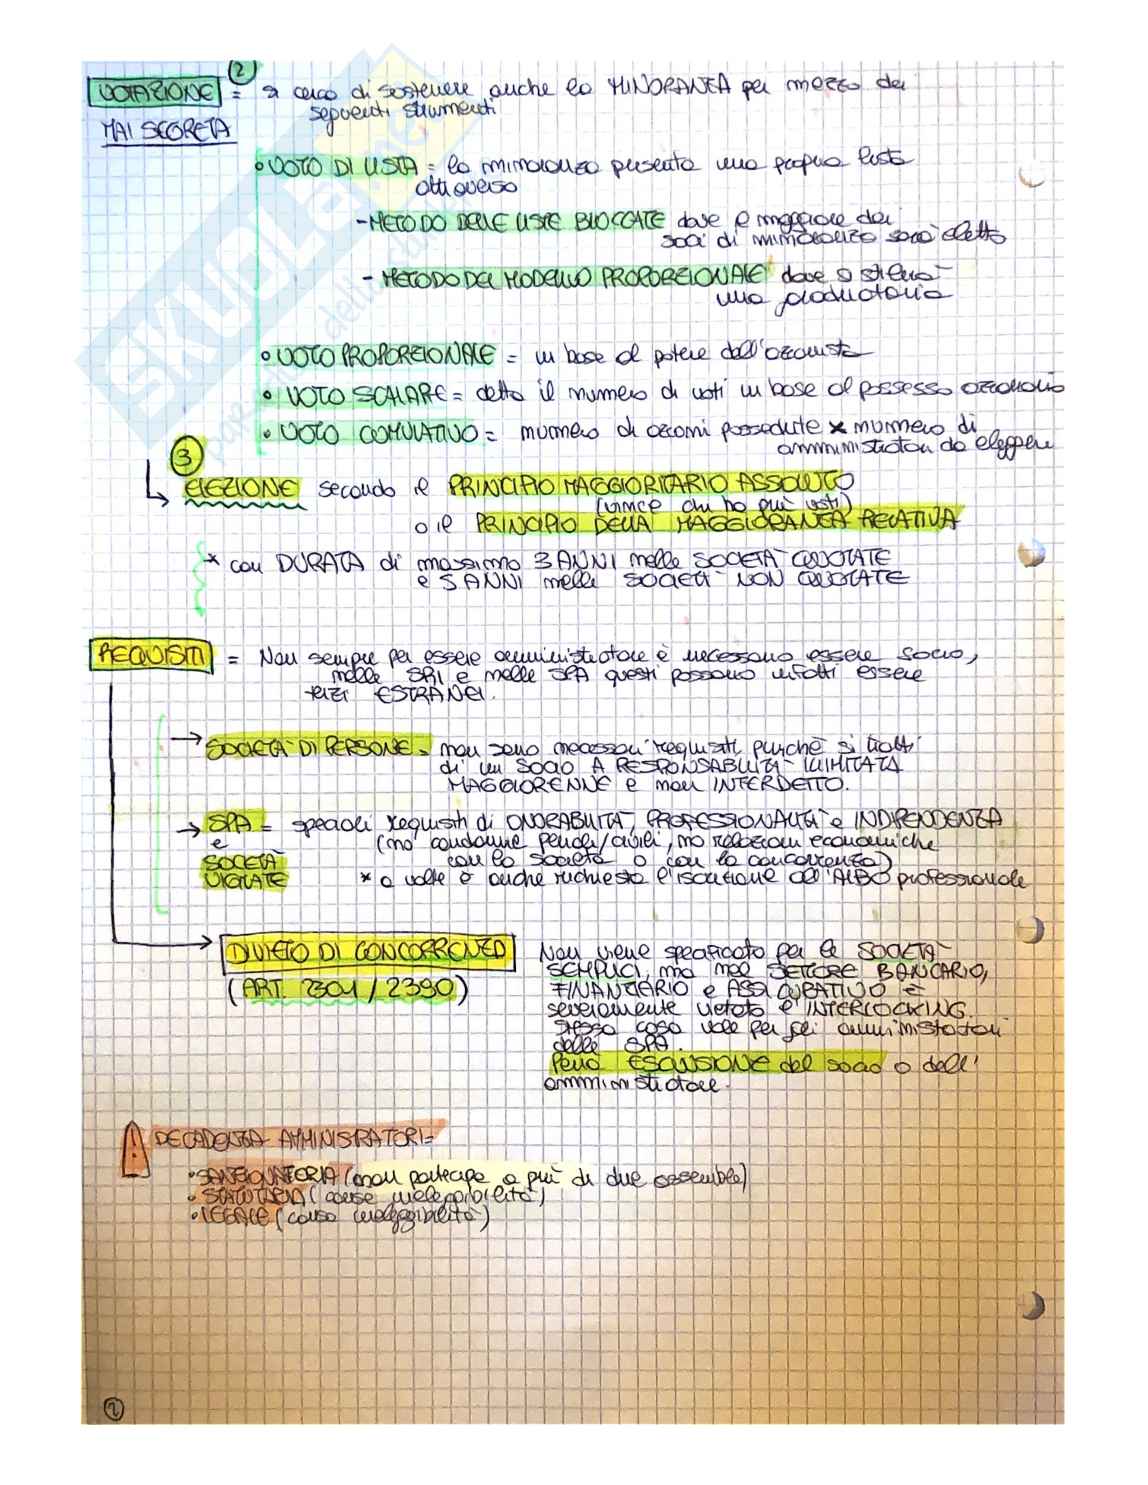 2
VOTAZIONE = si cerca di sostenere anche la MINORANZA per mezzo dei
seguenti strumenti
MAI SEGRETA
• VOTO DI LISTA = la minoranza presenta una propria lista
attraverso
- METODO DELLE LISTE BLOCCATE dove il maggiore dei
soci di minoranza sarà eletto
- METODO DEL MODELLO PROPORZIONALE dove si stila
una graduatoria
• VOTO PROPORZIONALE = in base al potere dell'azionista
• VOTO SCALARE = detta il numero di voti in base al possesso azionario
• VOTO COMULATIVO = numero di azioni possedute × numero di
amministratori da eleggere
3
ELEZIONE secondo il PRINCIPIO MAGGIORITARIO ASSOLUTO
(vince chi ha più voti)
o il PRINCIPIO DELLA MAGGIORANZA RELATIVA
* con DURATA di massimo 3 ANNI nelle SOCIETÀ QUOTATE
e 5 ANNI nelle SOCIETÀ NON QUOTATE
REQUISITI = Non sempre per essere amministratore è necessario essere socio,
nelle SRL e nelle SPA questi possono infatti essere
terzi ESTRANEI.
→ SOCIETÀ DI PERSONE = non sono necessari requisiti, purchè si tratti
di un SOCIO A RESPONSABILITÀ ILLIMITATA
MAGGIORENNE e non INTERDETTO.
→ SPA = speciali requisiti di ONORABILITÀ, PROFESSIONALITÀ e INDIPENDENZA
e (no condanne penali/civili, no relazioni economiche
SOCIETÀ con la società o con la concorrenza)
VIGILATE * a volte è anche richiesta l'iscrizione all'ALBO professionale
DIVIETO DI CONCORRENZA Non viene specificato per le SOCIETÀ
(ART. 2301/2390) SEMPLICI, ma nel SETTORE BANCARIO,
FINANZIARIO e ASSICURATIVO è
severamente vietato l'INTERLOCKING.
Stessa cosa vale per gli amministratori
delle SPA.
Pena ESCLUSIONE del socio o dell'
amministratore.
! DECADENZA AMMINISTRATORI=
• SANZIONATORIA (non partecipa a più di due assemblee)
• STATUTARIA (cause ineleggibilità)
• LEGALE (cause ineleggibilità)
2
SKUOLA.net